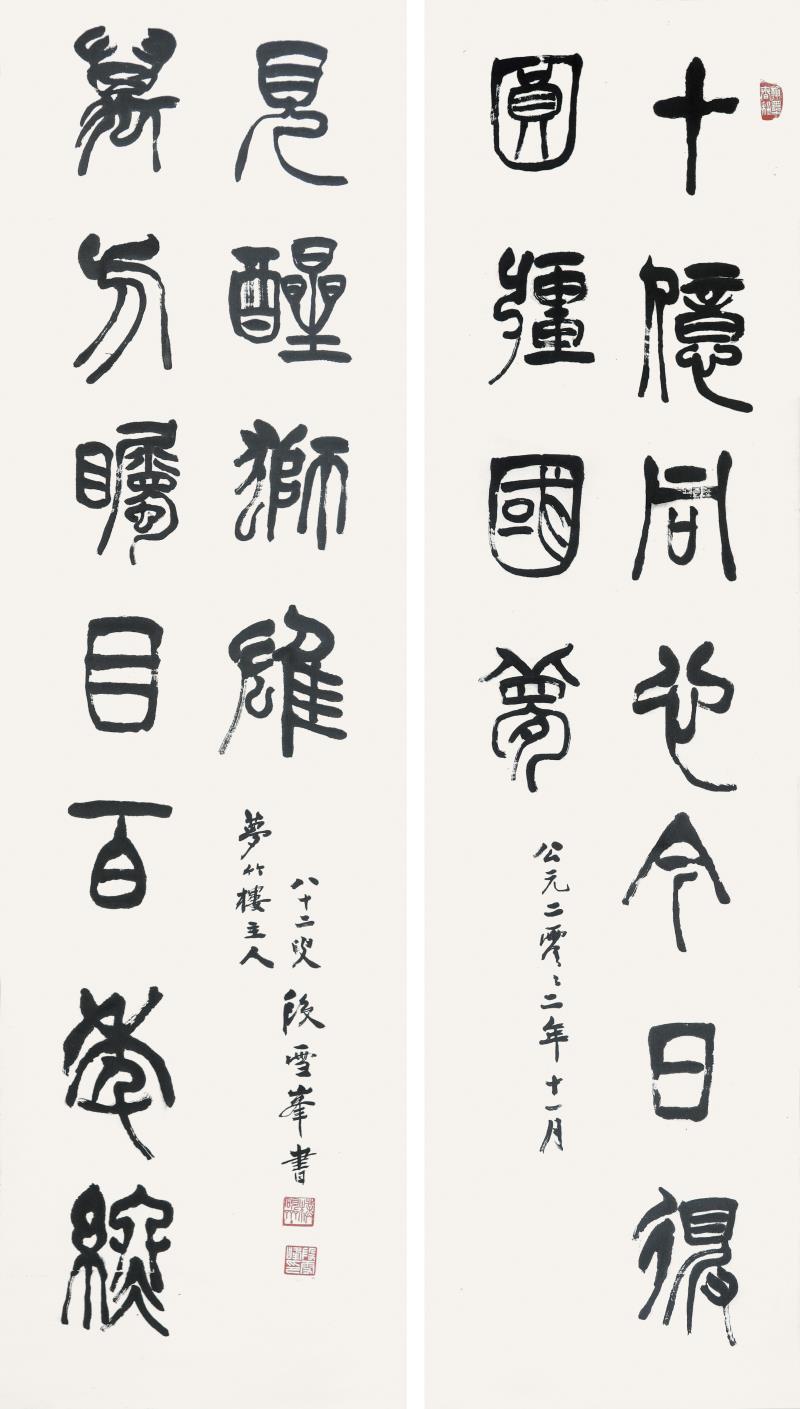 十億同心今日得
圓彊國夢
公元二零〻二年十一月
萬方矚目百年終
見醒獅雄
八十二叟段雪峯書
夢竹樓主人